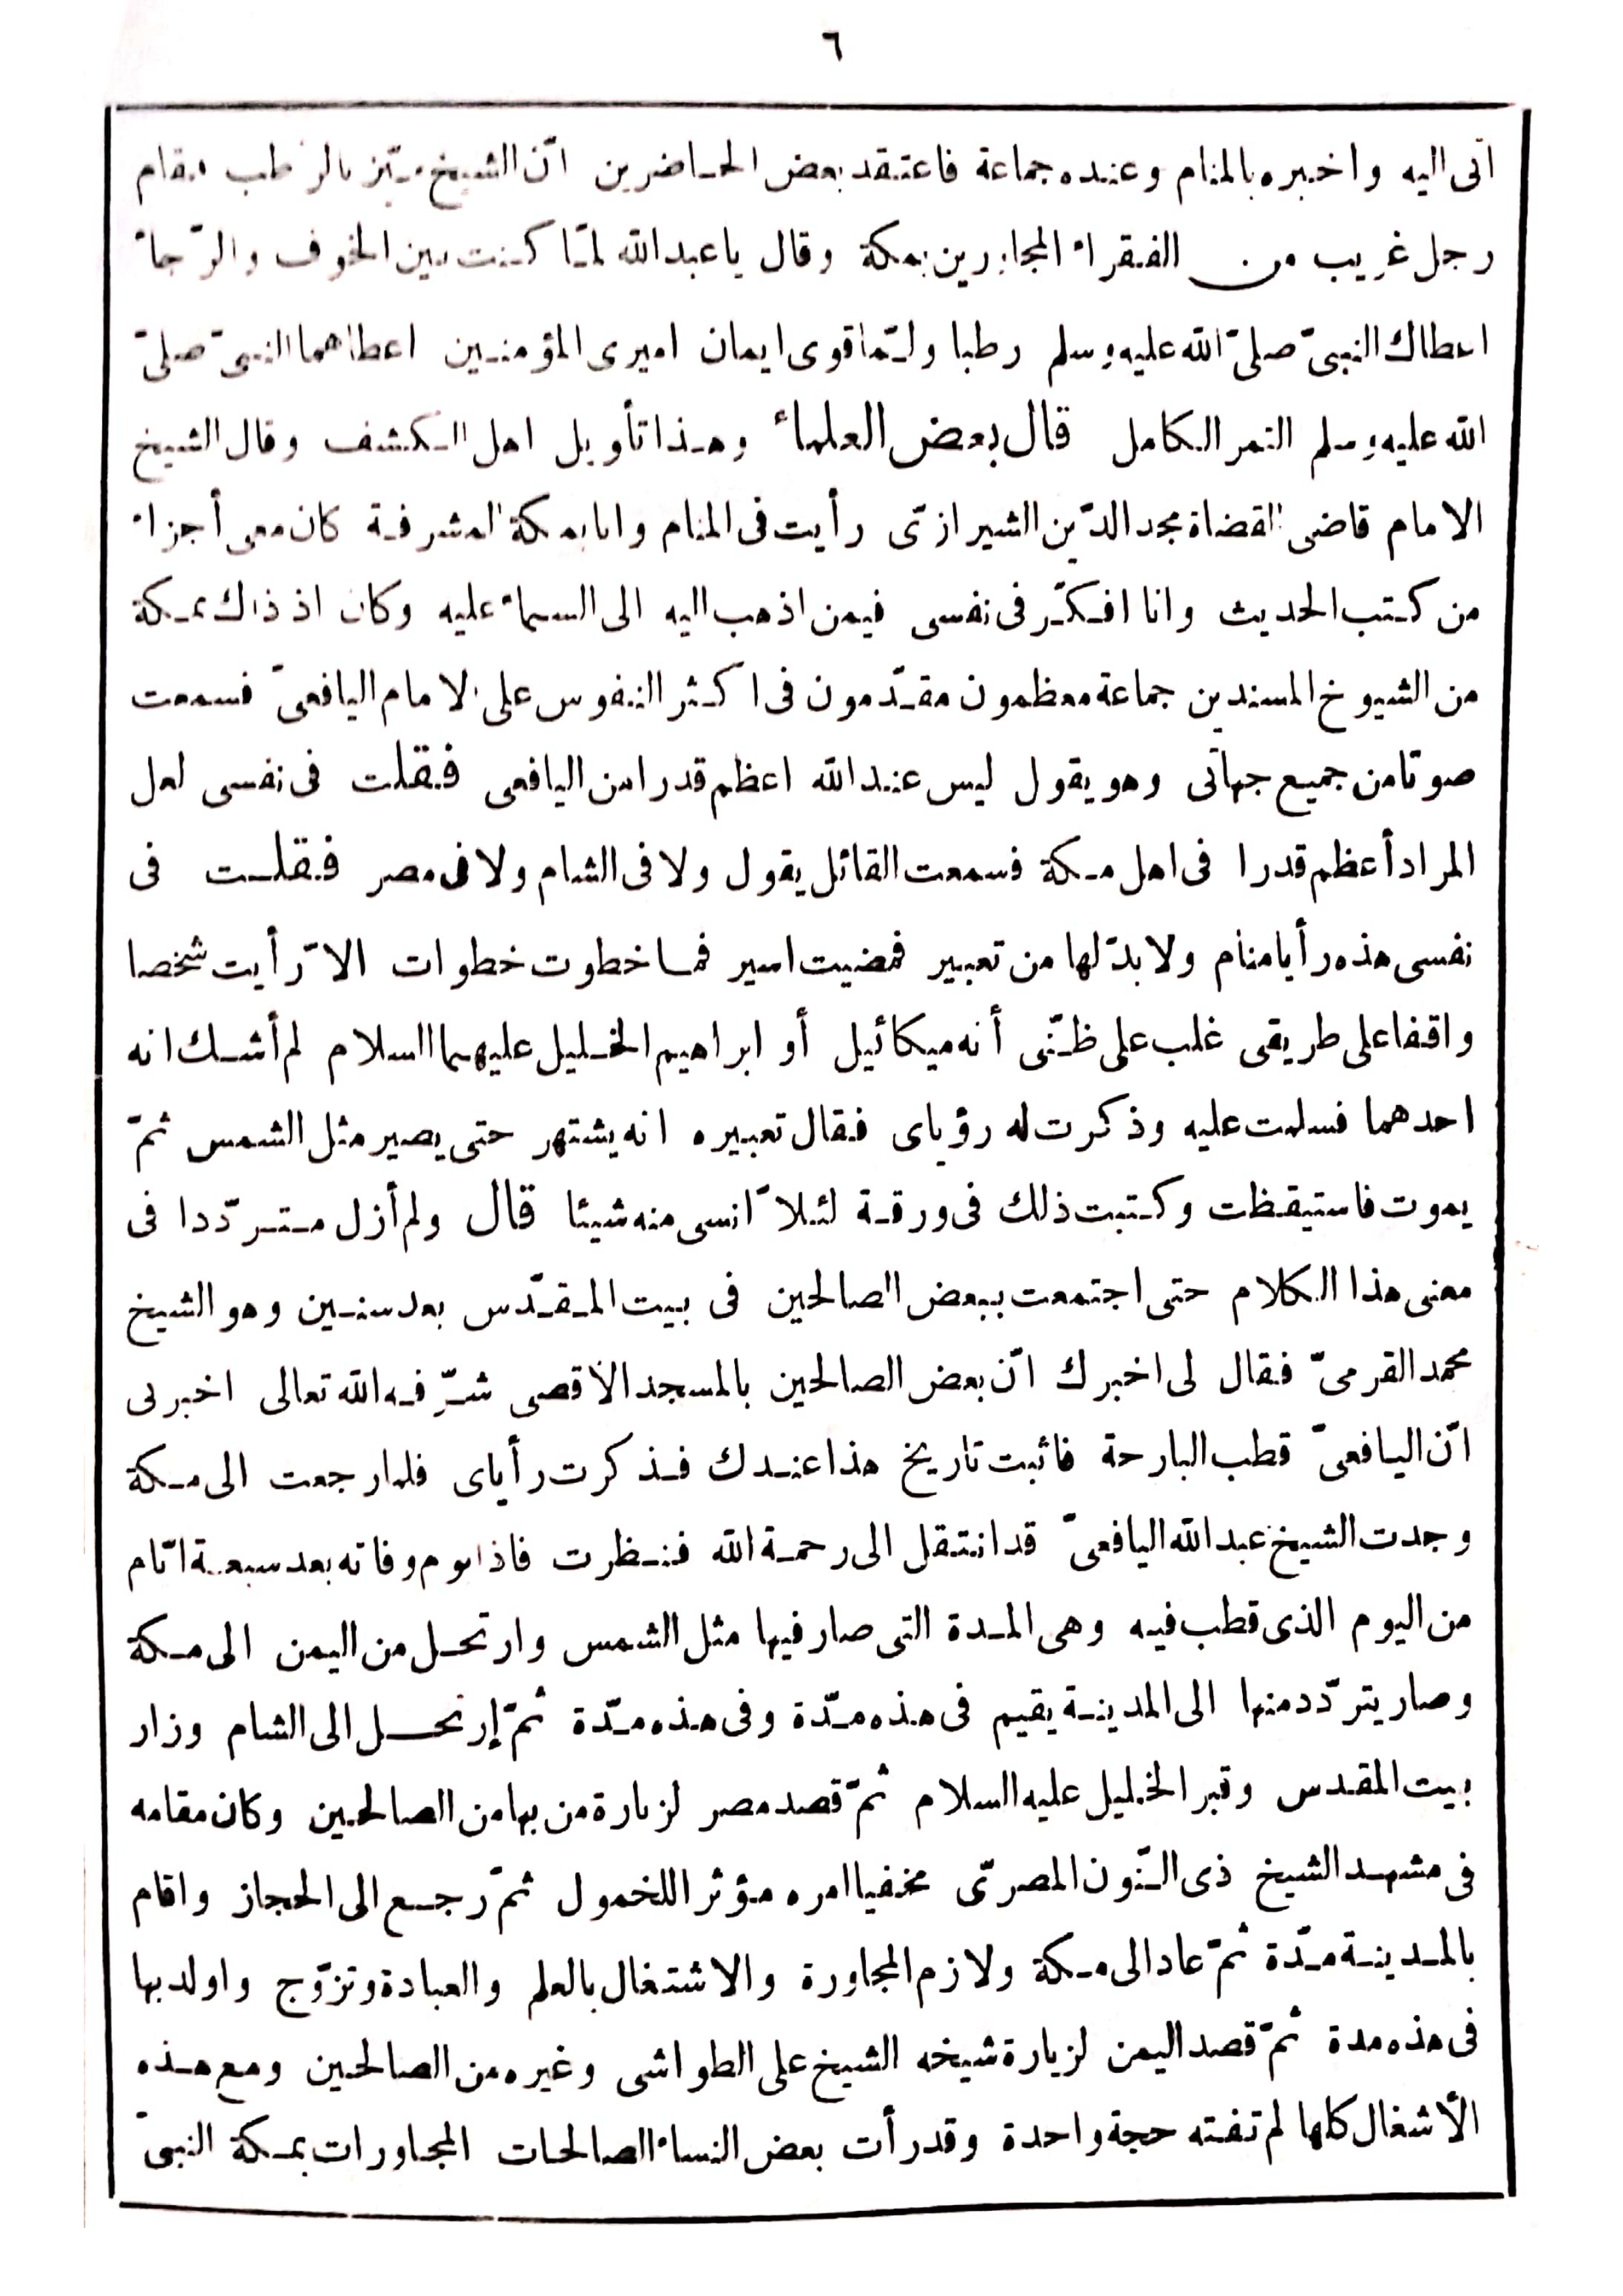 ٦
اتى اليه واخبره بالمنام وعنده جماعة فاعتقد بعض الحاضرين انّ الشيخ بالرطب فقام
رجل غريب من الفقراء المجاورين بمكة وقال يا عبد الله لمّا كنت بين الخوف والرّجاء
اعطاك النبىّ صلىّ الله عليه وسلم رطبا ولمّا قوى ايمان اميرى المؤمنين اعطاهما النبىّ صلىّ
الله عليه وسلم التمر الكامل قال بعض العلماء وهذا تأويل اهل الكشف وقال الشيخ
الامام قاضى القضاة مجد الدّين الشيرازىّ رأيت فى المنام وانا بمكة المشرفة كان معى أجزاء
من كتب الحديث وانا افكّر فى نفسى فيمن اذهب اليه الى السماء عليه وكان اذ ذاك بمكة
من الشيوخ المسندين جماعة معظمون مقدّمون فى اكثر النفوس على الامام اليافعىّ فسمعت
صوتا من جميع جهاتى وهو يقول ليس عند الله اعظم قدرا من اليافعى فقلت فى نفسى لعل
المراد أعظم قدرا فى اهل مكة فسمعت القائل يقول ولا فى الشام ولا فى مصر فقلت فى
نفسى هذه رأيا منام ولا بدّ لها من تعبير فمضيت اسير فما خطوت خطوات الاّ رأيت شخصا
واقفا على طريقى غلب على ظنّى أنه ميكائيل أو ابراهيم الخليل عليهما السلام لم أشك انه
احدهما فسلمت عليه وذكرت له رؤياى فقال تعبيره انه يشتهر حتى يصير مثل الشمس ثمّ
يموت فاستيقظت وكتبت ذلك فى ورقة لئلاّ انسى منه شيئا قال ولم أزل متردّدا فى
معنى هذا الكلام حتى اجتمعت ببعض الصالحين فى بيت المقدّس بعد سنين وهو الشيخ
محمد القرمىّ فقال لى اخبرك انّ بعض الصالحين بالمسجد الأقصى شرّفه الله تعالى اخبرنى
انّ اليافعىّ قطب البارحة فاثبت تاريخ هذا عندك فذكرت رأياى فلما رجعت الى مكة
وجدت الشيخ عبد الله اليافعىّ قد انتقل الى رحمة الله فنظرت فاذا يوم وفاته بعد سبعة ايّام
من اليوم الذى قطب فيه وهى المدة التى صار فيها مثل الشمس وارتحل من اليمن الى مكة
وصار يتردّد منها الى المدينة يقيم فى هذه مدّة وفى هذه مدّة ثمّ إرتحل الى الشام وزار
بيت المقدس وقبر الخليل عليه السلام ثمّ قصد مصر لزيارة من بها من الصالحين وكان مقامه
فى مشهد الشيخ ذى النّون المصرىّ مخفيا امره مؤثرا للخمول ثمّ رجع الى الحجاز واقام
بالمدينة مدّة ثمّ عاد الى مكة ولازم المجاورة والاشتغال بالعلم والعبادة وتزوّج واولد بها
فى هذه مدة ثمّ قصد اليمن لزيارة شيخه الشيخ على الطواشى وغيره من الصالحين ومع هذه
الأشغال كلها لم تفته حجة واحدة وقد رأت بعض النساء الصالحات المجاورات بمكة النبىّ